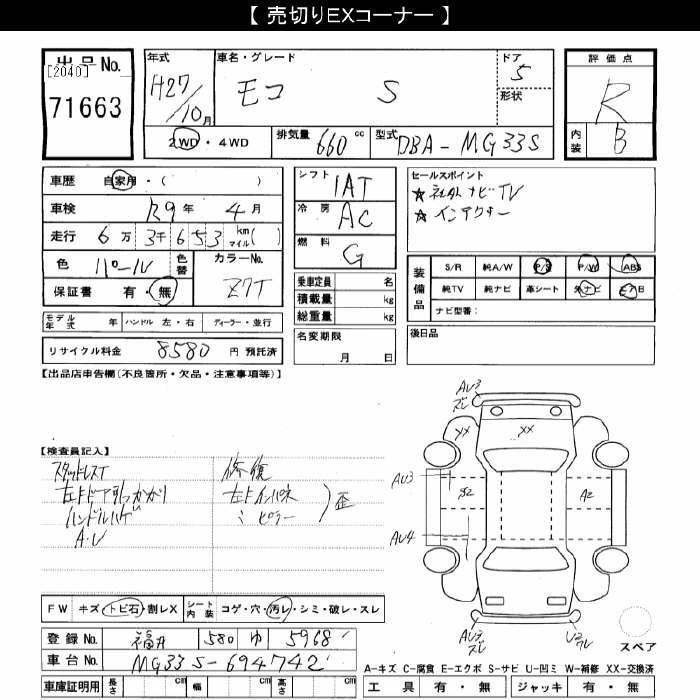 【 売切りEXコーナー 】
出品No.
[2040]
71663
年式
H27/10月
車名・グレード
モコ S
ドア
5
形状
評価点
R
内装
B
2WD・4WD
排気量 660 cc
型式 DBA-MG33S
車歴 自家用・( )
車検 R9年 4月
走行 6万3千653 km マイル( )
色 パール
色替
カラーNo.
Z7T
保証書 有・無
モデル年式 年 ハンドル 左・右 ディーラー・並行
リサイクル料金 8580 円 預託済
シフト
IAT
冷房
AC
燃料
G
乗車定員 名
積載量 kg
総重量 kg
名変期限
月 日
セールスポイント
☆社外ナビTV
☆インテリキー
装備品
S/R 純A/W P/S P/W ABS
純TV 純ナビ 革シート 外ナビ エアB
ナビ型番:
後日品
【出品店申告欄(不良箇所・欠品・注意事項等)】
【検査員記入】
スタッドレスT
左Fドア引っかかり
ハンドルハゲ
A・U
修復
左Fインパネ
〃 ピラー
歪
FW キズ・トビ石・割レX
シート内装 コゲ・穴・汚レ・シミ・破レ・スレ
登録No. 福井 580 ゆ 5968
車台No. MG33S-694742
車庫証明用 長さ cm 幅 cm 高さ cm
AU3
ズレ
XX
XX
AU3
S2
A2
AU4
AU3
ズレ
U2
スペア
A-キズ C-腐食 E-エクボ S-サビ U-凹ミ W-補修 XX-交換済
工具 有・無 ジャッキ 有・無